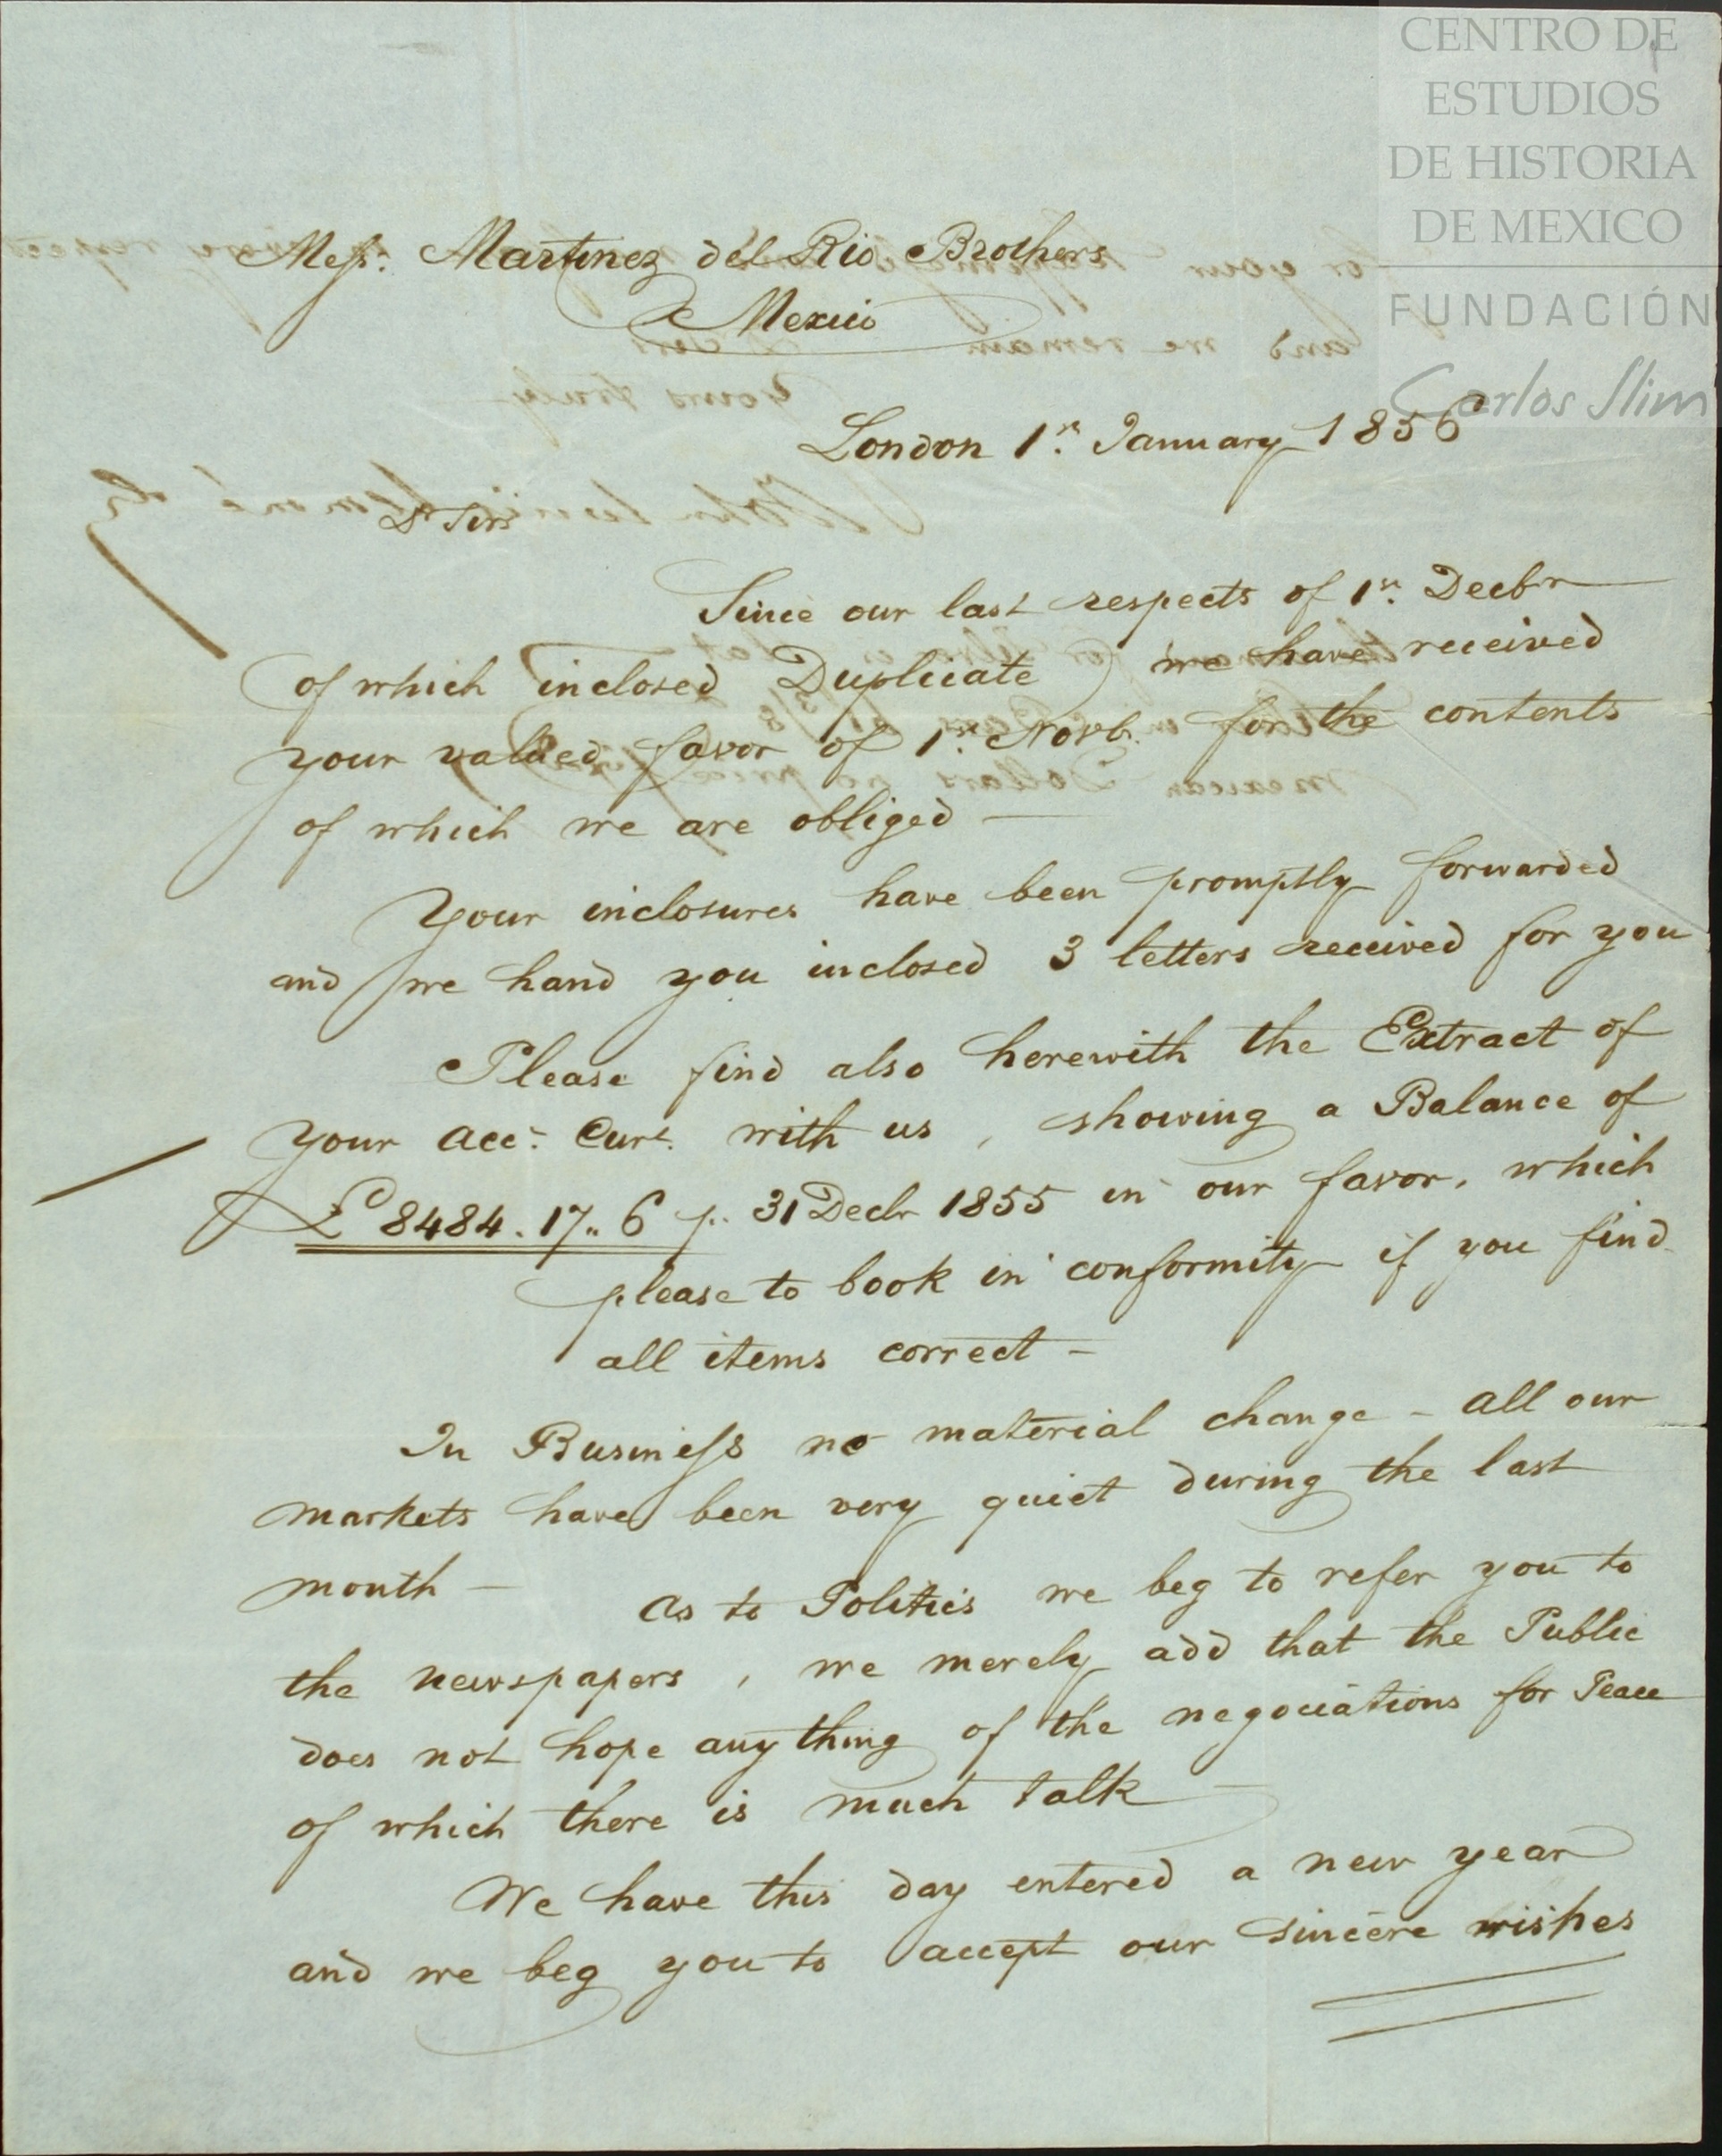 CENTRO DE
ESTUDIOS
DE HISTORIA
DE MEXICO
FUNDACIÓN
Carlos Slim
Mess.rs Martinez del Rio Brothers
Mexico
London 1st January 1856
Dr Sirs
Since our last respects of 1st Decbr
(of which inclosed Duplicate) we have received
your valued favor of 1st Novb. for the contents
of which we are obliged —
Your inclosures have been promptly forwarded
and we hand you inclosed 3 letters received for you
Please find also herewith the Extract of
your Acct. Curt. with us, showing a Balance of
£8484.17..6 p. 31 Decbr 1855 in our favor, which
please to book in conformity if you find
all items correct —
In Business no material change — all our
markets have been very quiet during the last
month — As to Politics we beg to refer you to
the newspapers, we merely add that the Public
does not hope any thing of the negociations for Peace
of which there is much talk —
We have this day entered a new year
and we beg you to accept our sincere wishes